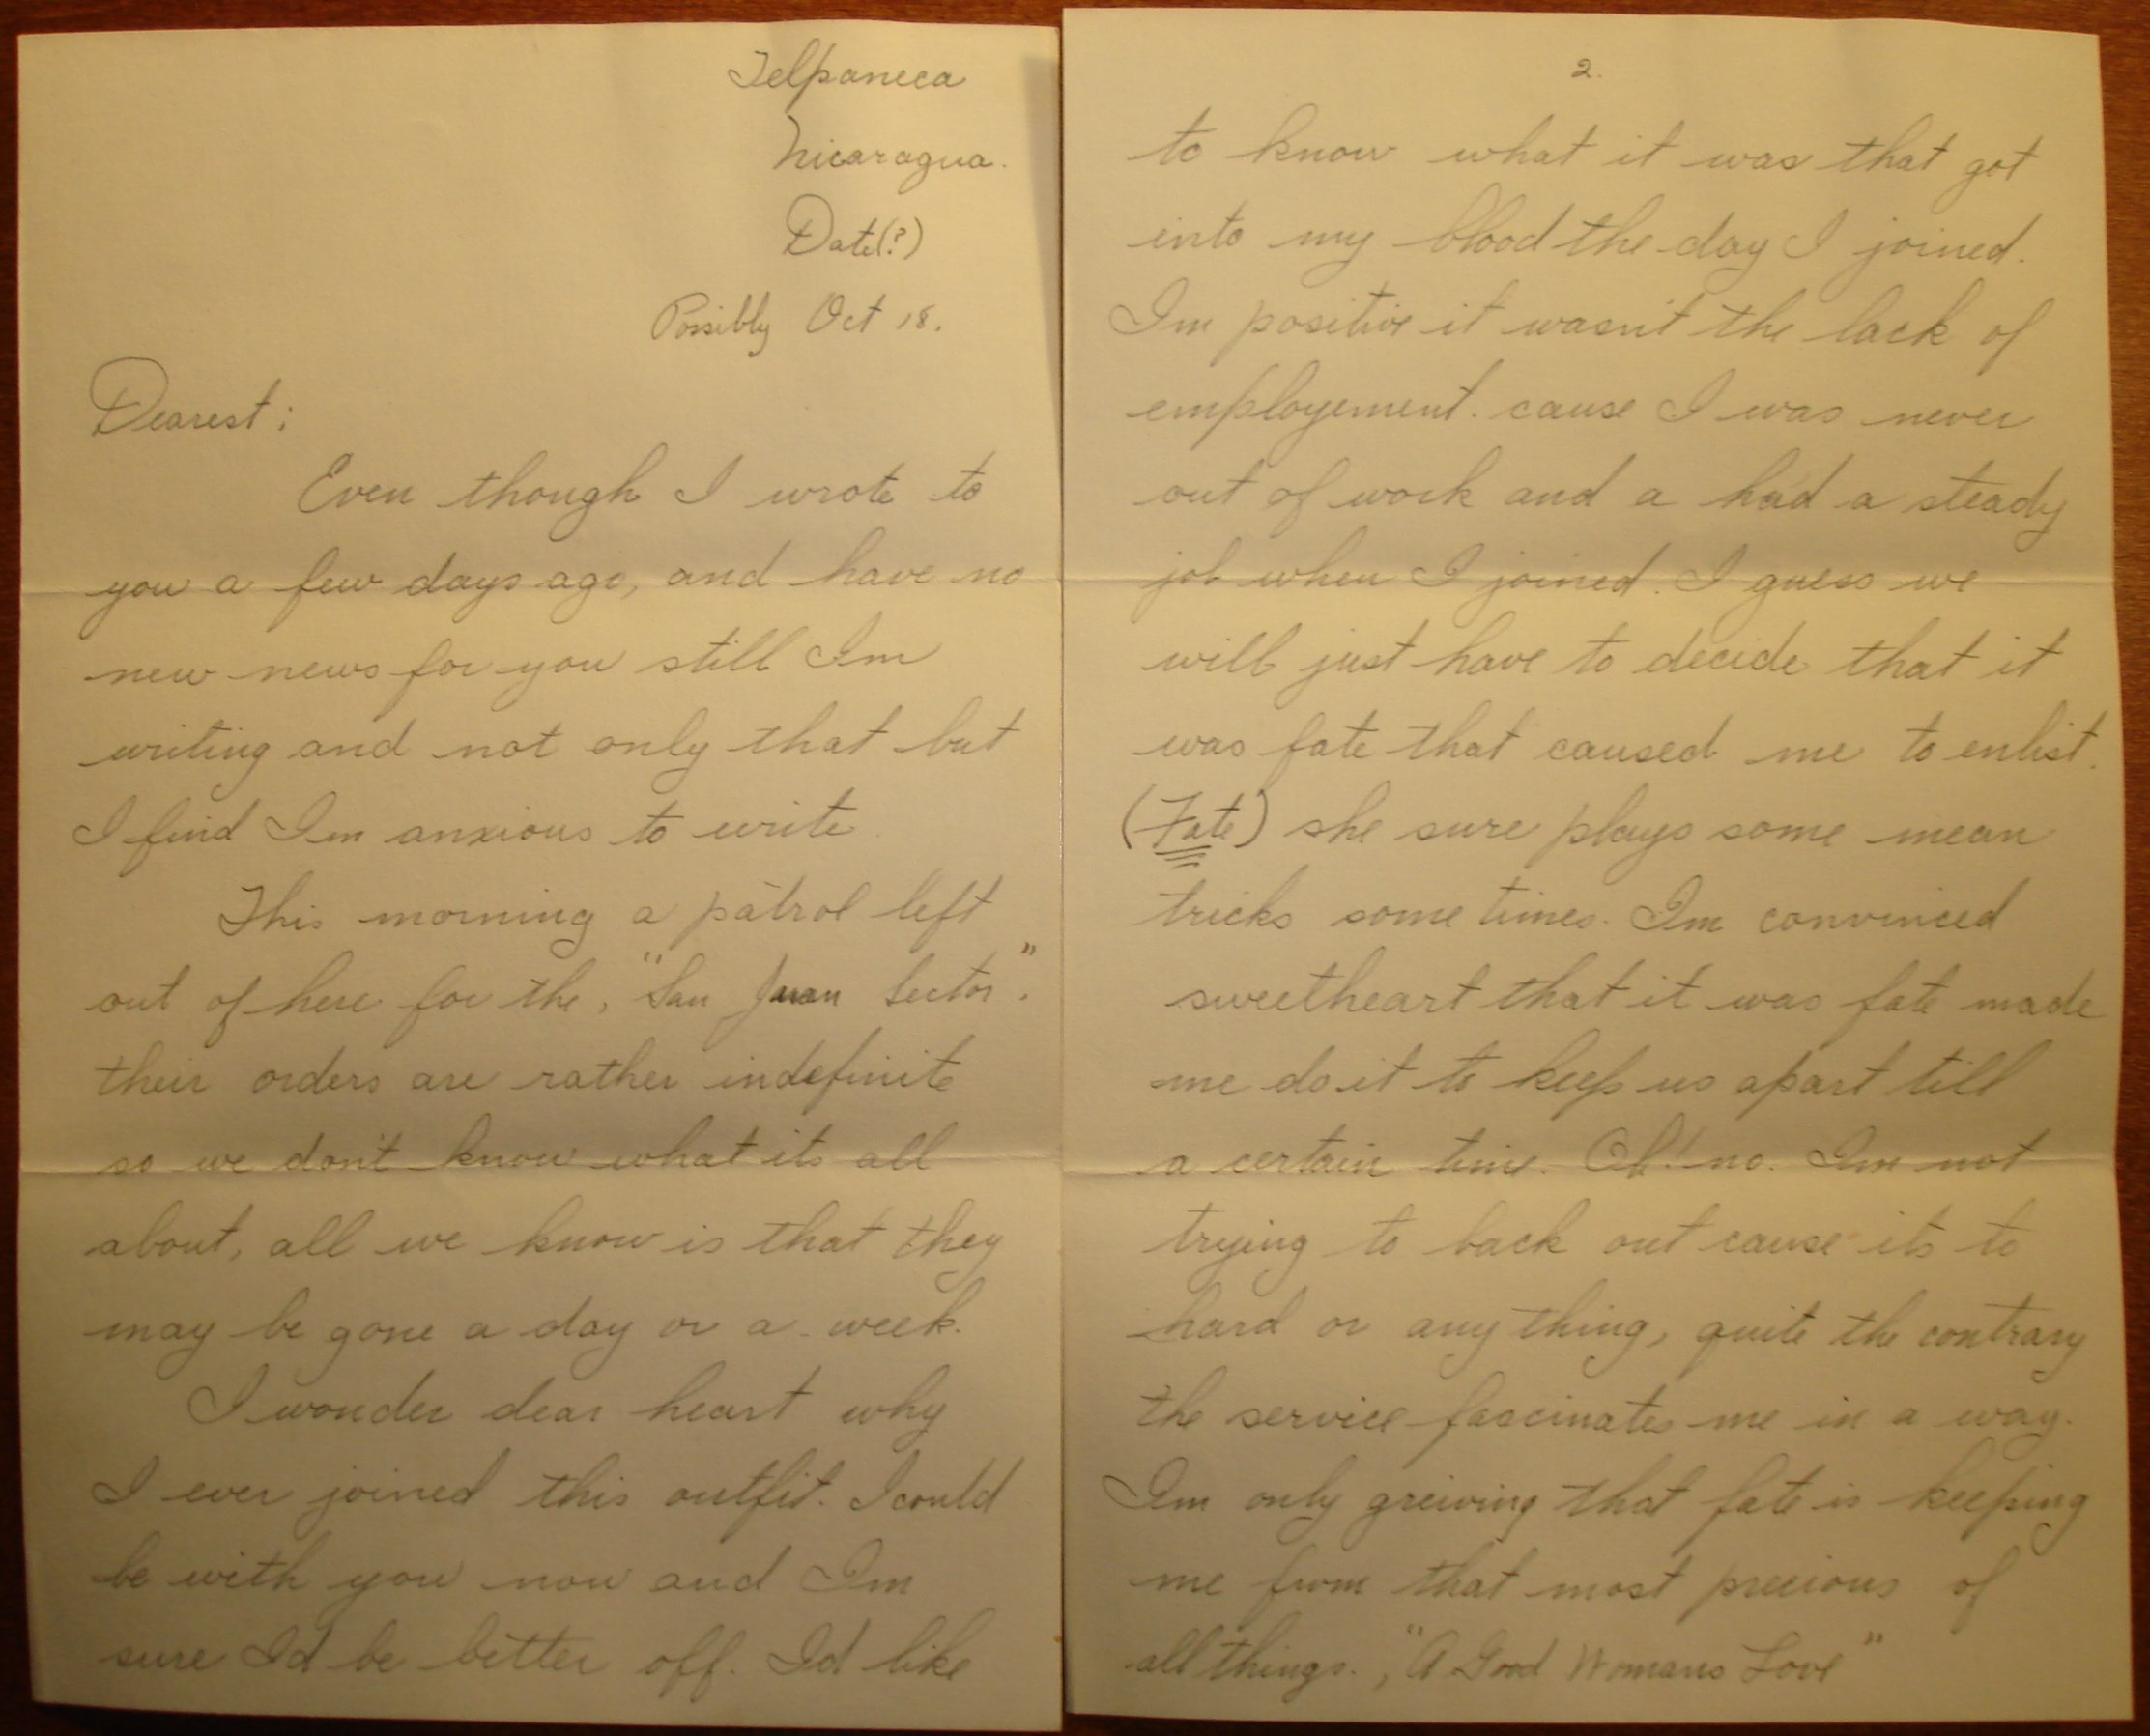 Telpaneca
Nicaragua.
Date(?)
Possibly Oct 18.
Dearest;
Even though I wrote to
you a few days ago, and have no
new news for you still Im
writing and not only that but
I find Im anxious to write.
This morning a patrol left
out of here for the, "San Juan Sector".
their orders are rather indefinite
so we don't know what its all
about, all we know is that they
may be gone a day or a week.
I wonder dear heart why
I ever joined this outfit. I could
be with you now and Im
sure Id be better off. Id like
2.
to know what it was that got
into my blood the day I joined.
Im positive it wasn't the lack of
employement. cause I was never
out of work and a had a steady
job when I joined. I guess we
will just have to decide that it
was fate that caused me to enlist.
(Fate) she sure plays some mean
tricks some times. Im convinced
sweetheart that it was fate made
me do it to keep us apart till
a certain time. Oh! no. Im not
trying to back out cause its to
hard or any thing, quite the contrary
the service fascinates me in a way.
Im only greiving that fate is keeping
me from that most precious of
all things. , "A Good Womans Love"